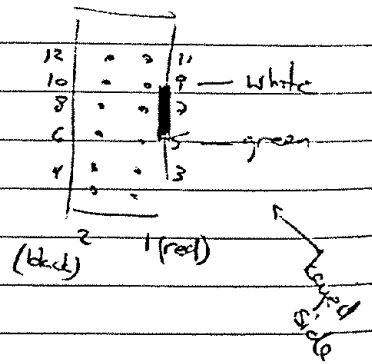 12 11
10 9 — white
8 7
6 5 — green
4 3
2 1 (red)
(black)
keyed
side